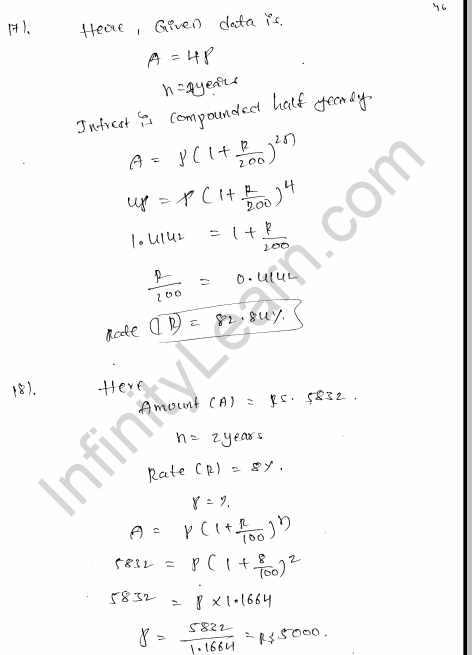 46
17). Here, Given data is.
A = 4P
n = 2years
Intrest is compounded half yearly
A = P(1+R/200)^2n
4P = P(1+R/200)^4
1.4142 = 1+R/200
R/200 = 0.4142
Rate (R) = 82.84%.
18). Here
Amount (A) = RS. 5832.
n = 2years
Rate (R) = 8%.
P = ?.
A = P(1+R/100)^n
5832 = P(1+8/100)^2
5832 = P×1.1664
P = 5832/1.1664 = RS 5000.
InfinityLearn.com